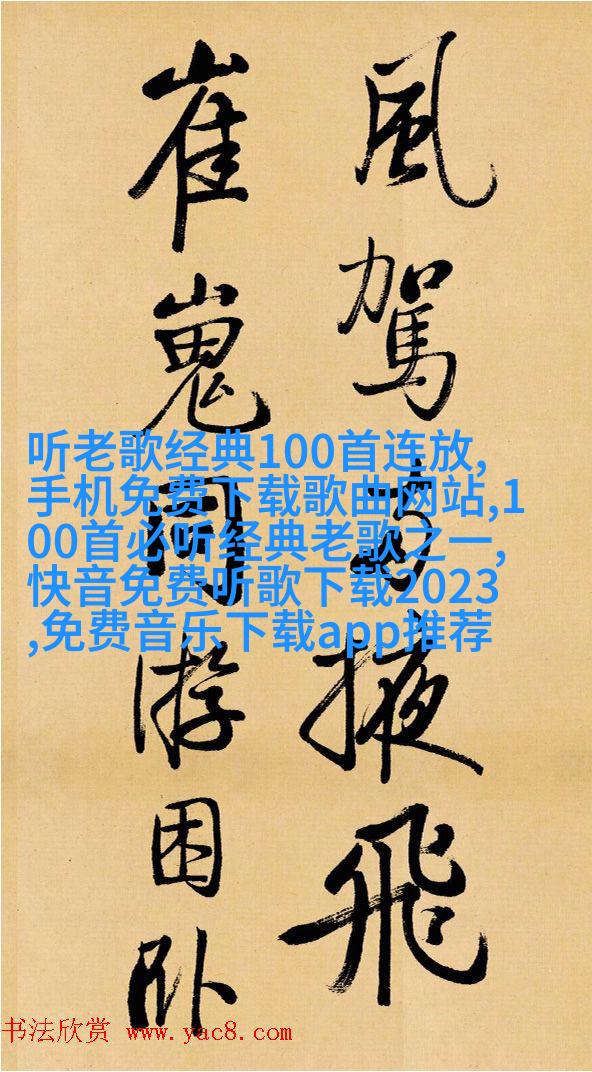 風駕掖飛
崔嵬游困卧
听老歌经典100首连放,
手机免费下载歌曲网站,1
00首必听经典老歌之一,
快音免费听歌下载2023
,免费音乐下载app推荐
书法欣赏 www.yac8.com